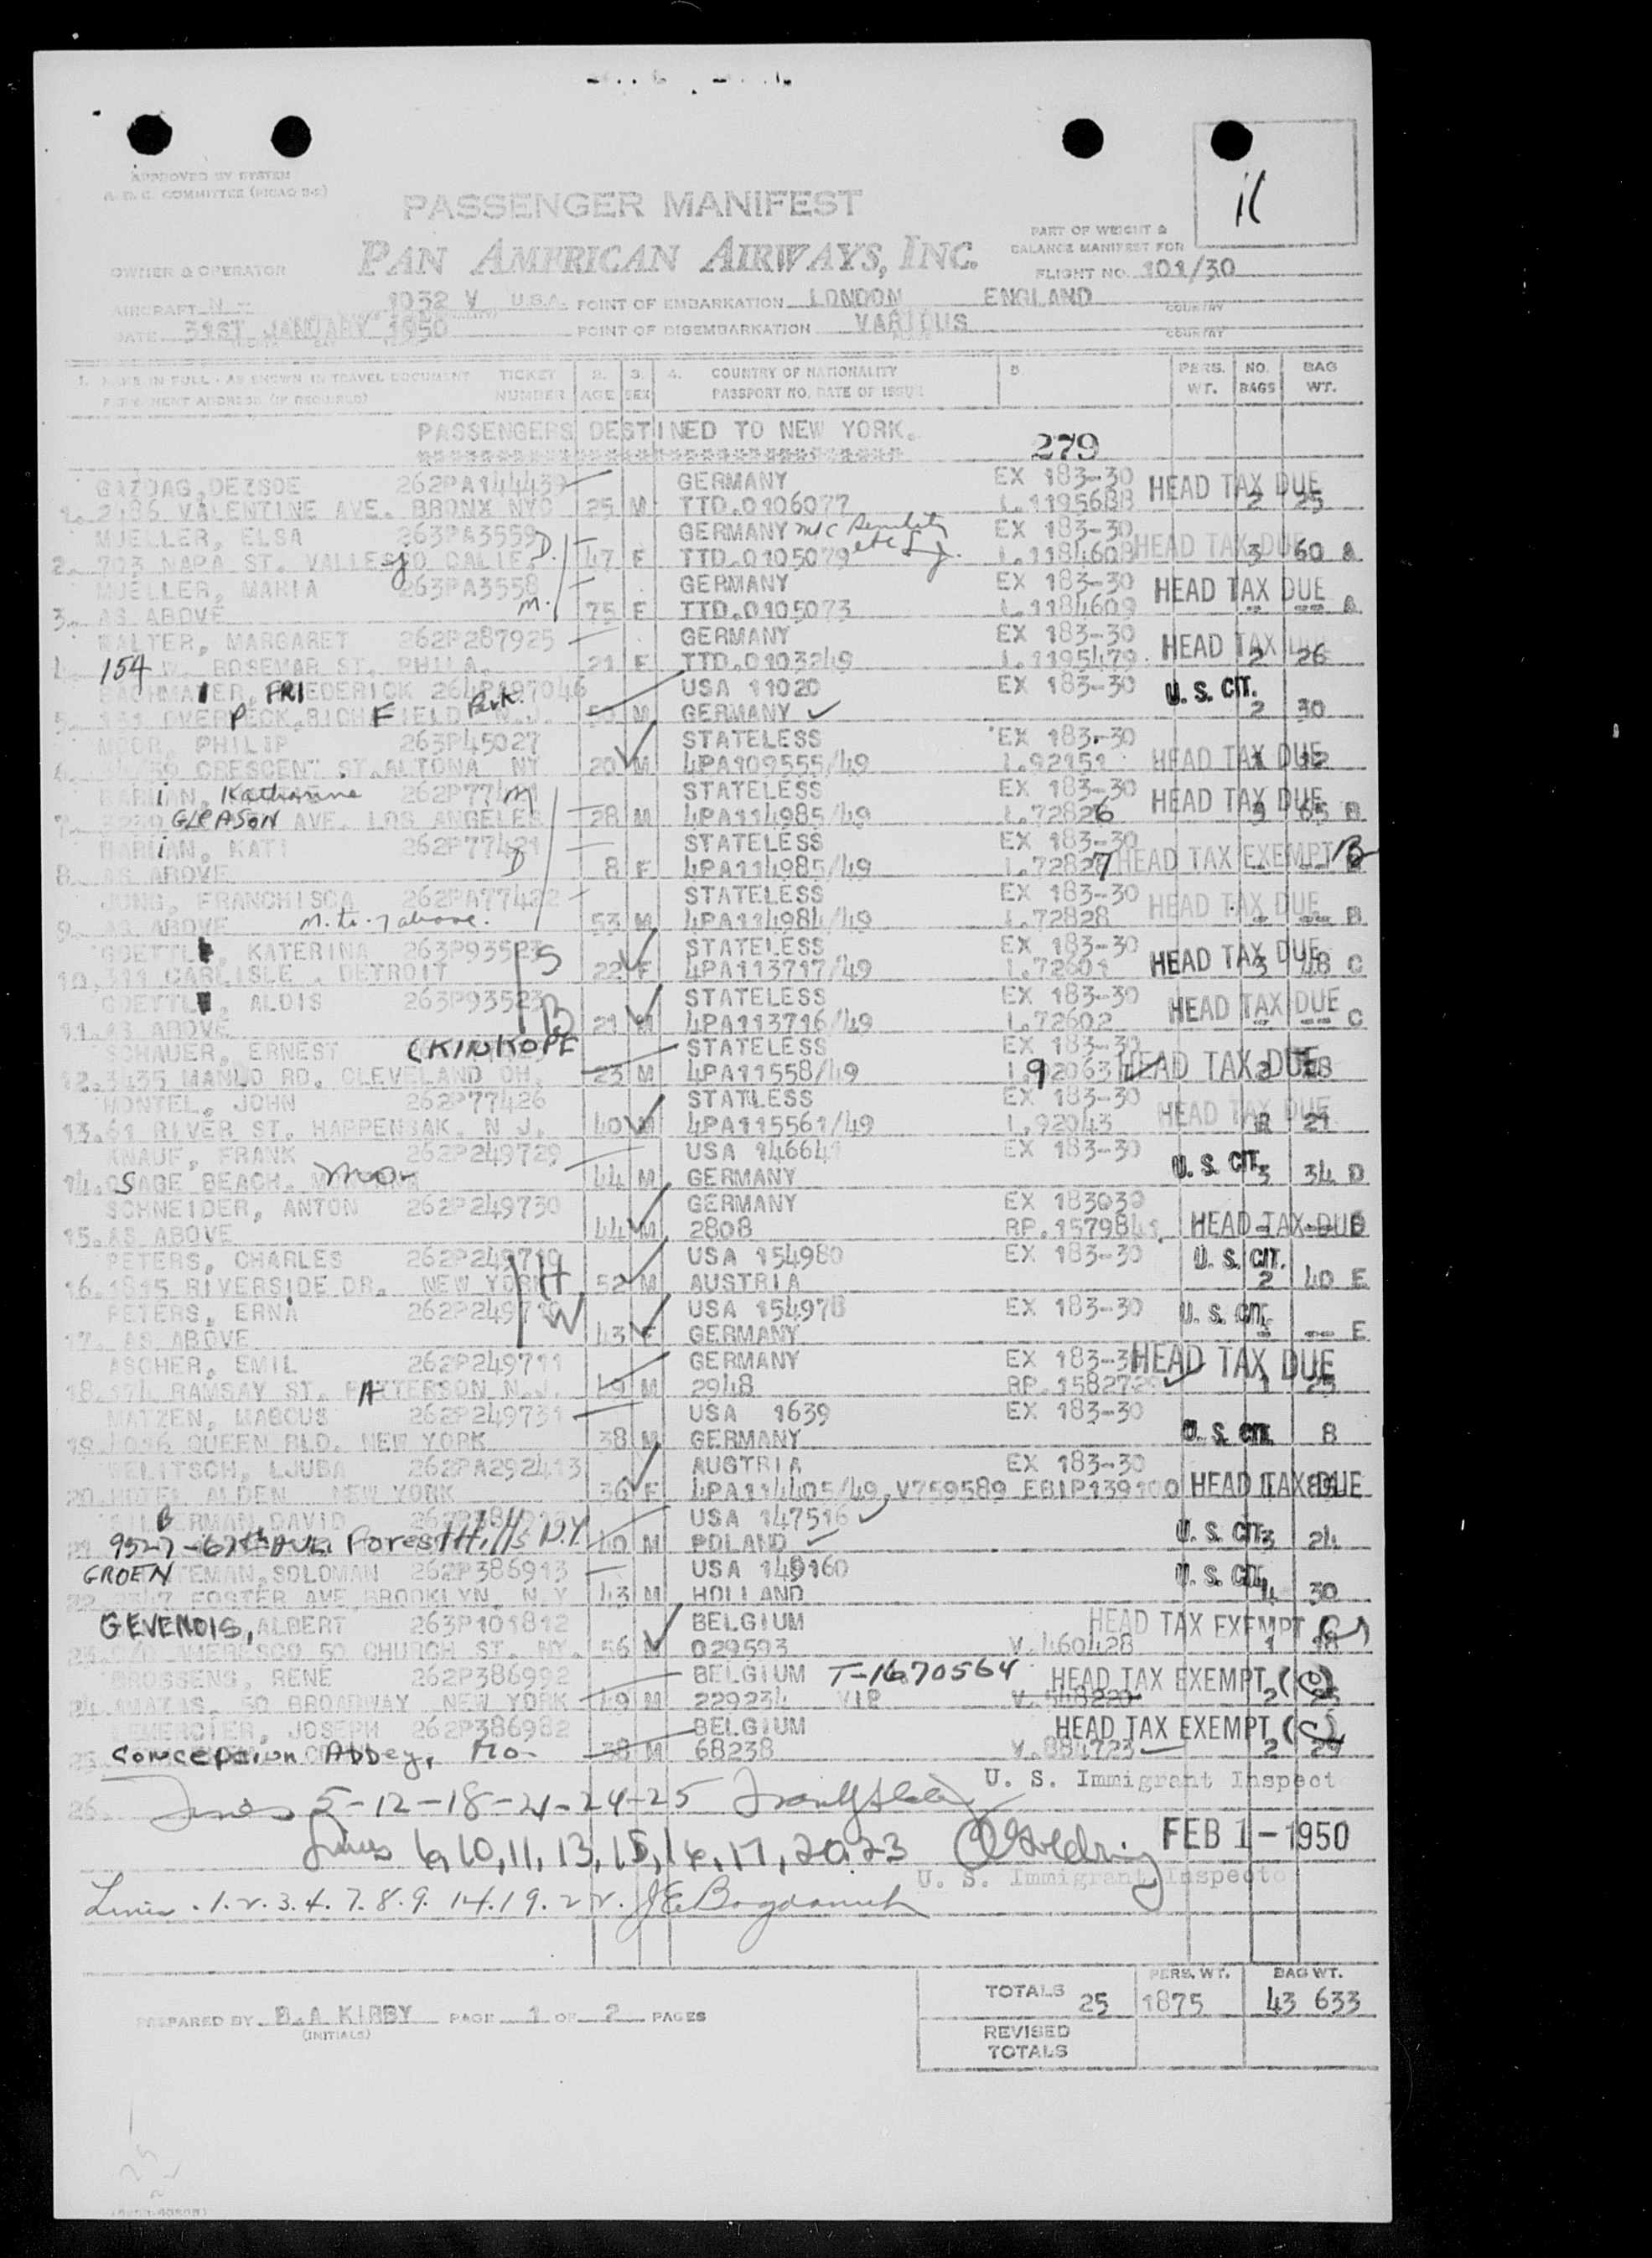 APPROVED BY SYSTEM
COMMITTEE (PICAO 2-2)
PASSENGER MANIFEST
11
PART OF WEIGHT &
BALANCE MANIFEST FOR
OWNER & OPERATOR
PAN AMERICAN AIRWAYS, INC.
FLIGHT NO. 101/30
AIRCRAFT N - 1032 V U.S.A. POINT OF EMBARKATION LONDON ENGLAND
COUNTRY
DATE 31ST JANUARY 1950 POINT OF DISEMBARKATION VARIOUS
COUNTRY
1. NAME IN FULL - AS SHOWN IN TRAVEL DOCUMENT TICKET 2. 3. 4. COUNTRY OF NATIONALITY 5. PERS. NO. BAG
PERMANENT ADDRESS (IF REQUIRED) NUMBER AGE SEX PASSPORT NO. DATE OF ISSUE WT. BAGS WT.
PASSENGERS DESTINED TO NEW YORK. 279
GAZDAG, DEZSOE 262PA144439 GERMANY EX 183-30 HEAD TAX DUE
1. 2186 VALENTINE AVE. BRONX NYC 25 M TTD.0106077 I.1195688 2 25
MUELLER, ELSA 263PA3559 D. GERMANY EX 183-30
2. 703 NAPA ST. VALLEJO CALIF. 47 F TTD.0105079 I.1184608 HEAD TAX DUE 3 60 A
MUELLER, MARIA 263PA3558 M. GERMANY EX 183-30 HEAD TAX DUE
3. AS ABOVE 75 F TTD.0105073 I.1184609 - -- A
WALTER, MARGARET 262P287925 GERMANY EX 183-30 HEAD TAX DUE
4. 154 ROSEMAR ST. PHILA. 21 F TTD.0103249 I.1195479 2 26
BACHMAIER, FRIEDERICK 264P197046 USA 11020 EX 183-30 U. S. CIT.
5. OVERPECK, RICHFIELD Park. N.J. 50 M GERMANY 2 30
MOOR, PHILIP 263P45027 STATELESS EX 183-30
6. CRESCENT ST. ALTONA NY 20 M 4PA109555/49 I.92151 HEAD TAX DUE 1 12
Katharine 262P77421 M STATELESS EX 183-30 HEAD TAX DUE
7. GLEASON AVE. LOS ANGELES 28 M 4PA114985/49 I.72826 3 65 B
BARIAN, KATI 262P77421 D STATELESS EX 183-30
8. AS ABOVE 8 F 4PA114985/49 I.72827 HEAD TAX EXEMPT B
JUNG, FRANCHISCA 262PA77422 STATELESS EX 183-30 HEAD TAX DUE
9. AS ABOVE m. to 7 above. 53 M 4PA114984/49 I.72828 - -- B
GOETTL, KATERINA 263P93523 S STATELESS EX 183-30 HEAD TAX DUE
10. 311 CARLISLE . DETROIT 22 F 4PA113717/49 I.72601 3 48 C
GOETTL, ALOIS 263P93523 B STATELESS EX 183-30 HEAD TAX DUE
11. AS ABOVE 21 M 4PA113716/49 I.72602 - -- C
SCHAUER, ERNEST (KINKOPF STATELESS EX 183-30
12. 3435 MANLO RD. CLEVELAND OH. 23 M 4PA11558/49 I.92063 HEAD TAX DUE 2 38
MONTEL, JOHN 262P77426 STATELESS EX 183-30
13. 61 RIVER ST. HAPPENSAK. N J. 40 M 4PA115561/49 I.92043 HEAD TAX DUE 2 21
KNAUF, FRANK 262P249729 USA 146641 EX 183-30
14. OSAGE BEACH. Mor 44 M GERMANY U. S. CIT. 3 34 D
SCHNEIDER, ANTON 262P249730 GERMANY EX 183030
15. AS ABOVE 44 M 2808 RP.1579841. HEAD TAX DUE - -- D
PETERS, CHARLES 262P249710 H USA 154980 EX 183-30 U. S. CIT.
16. 1815 RIVERSIDE DR. NEW YORK 52 M AUSTRIA 2 40 E
PETERS, ERNA 262P249710 W USA 154978 EX 183-30 U. S. CIT.
17. AS ABOVE 43 F GERMANY - -- E
ASCHER, EMIL 262P249711 GERMANY EX 183-30 HEAD TAX DUE
18. 174 RAMSAY ST. PATTERSON N.J. 49 M 2948 RP.158272 1 25
MATZEN, MAGOUS 262P249731 USA 1639 EX 183-30
19. QUEEN BLD. NEW YORK 38 M GERMANY U. S. CIT. 8
BELITSCH, LJUBA 262PA292413 AUSTRIA EX 183-30
20. HOTEL ALDEN NEW YORK 36 F 4PA114405/49 V759589 HEAD TAX DUE
SILBERMAN, DAVID USA 147516
21 Forest Hills N.Y. 40 M POLAND U. S. CIT. 3 24
GROENTEMAN, SOLOMAN 262P386913 USA 149160
22. FOSTER AVE BROOKLYN. N.Y 43 M HOLLAND U. S. CIT. 4 30
GEVENOIS, ALBERT 263P101812 BELGIUM HEAD TAX EXEMPT
23. C/O AMERESCO 50 CHURCH ST. NY. 56 M 029593 V.460428 1 18
GROSSENS, RENE 262P386992 BELGIUM T-1670564 HEAD TAX EXEMPT (C)
24. AMATAS, 50 BROADWAY NEW YORK 49 M 229234 VIP 2
LEMERCIER, JOSEPH 262P386982 BELGIUM HEAD TAX EXEMPT (C)
25. Concepcion Abbey, Mo- 38 M 68238 V.884723 2 29
U. S. Immigrant Inspect
26. Lines 5-12-18-21-24-25
Lines 6,10,11,13,15,16,17,20,23 FEB 1-1950
U. S. Immigrant Inspecto
Lines. 1. 2. 3. 4. 7. 8. 9. 14. 19. 22.
PERS. WT. BAG WT.
TOTALS 25 1875 43 633
PREPARED BY B.A KIRBY PAGE 1 OF 2 PAGES
(INITIALS)
REVISED
TOTALS